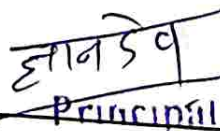 ज्ञानदेव
Principal